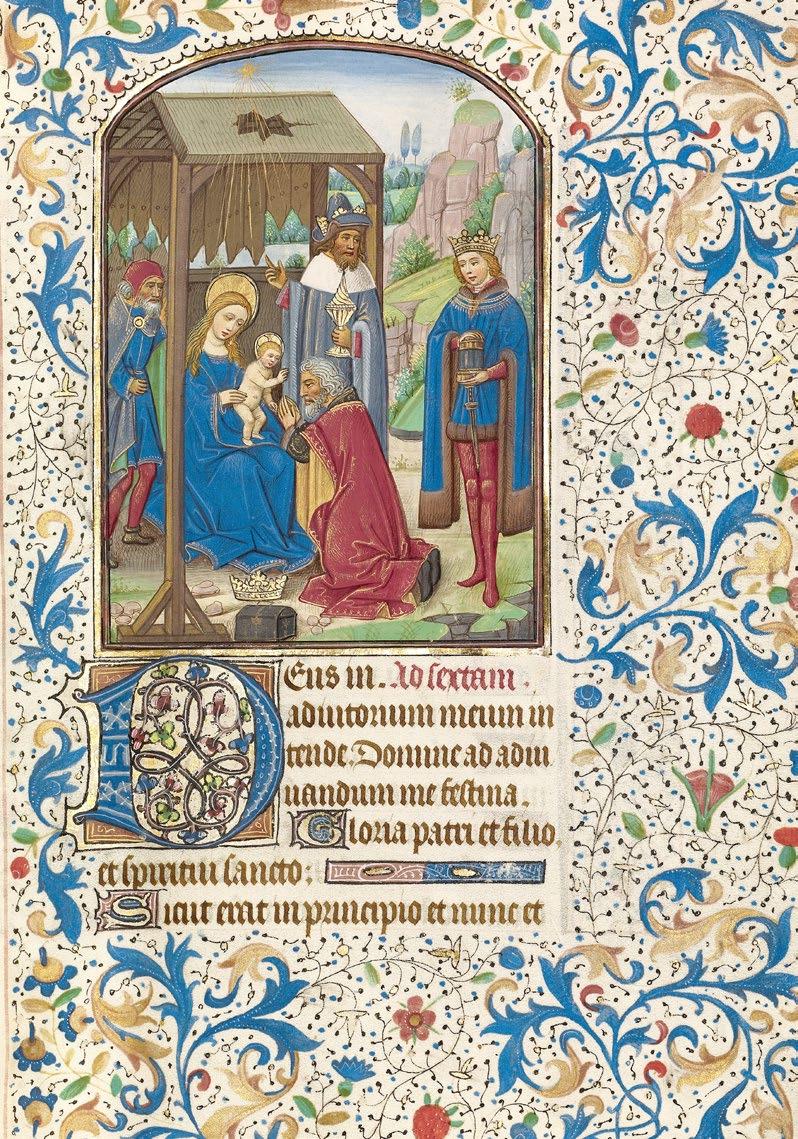 Deus in. Ad sextam.
adiutorium meum in
tende. Domine ad adiu
uandum me festina.
Gloria patri et filio.
et spiritui sancto:
Sicut erat in principio et nunc et